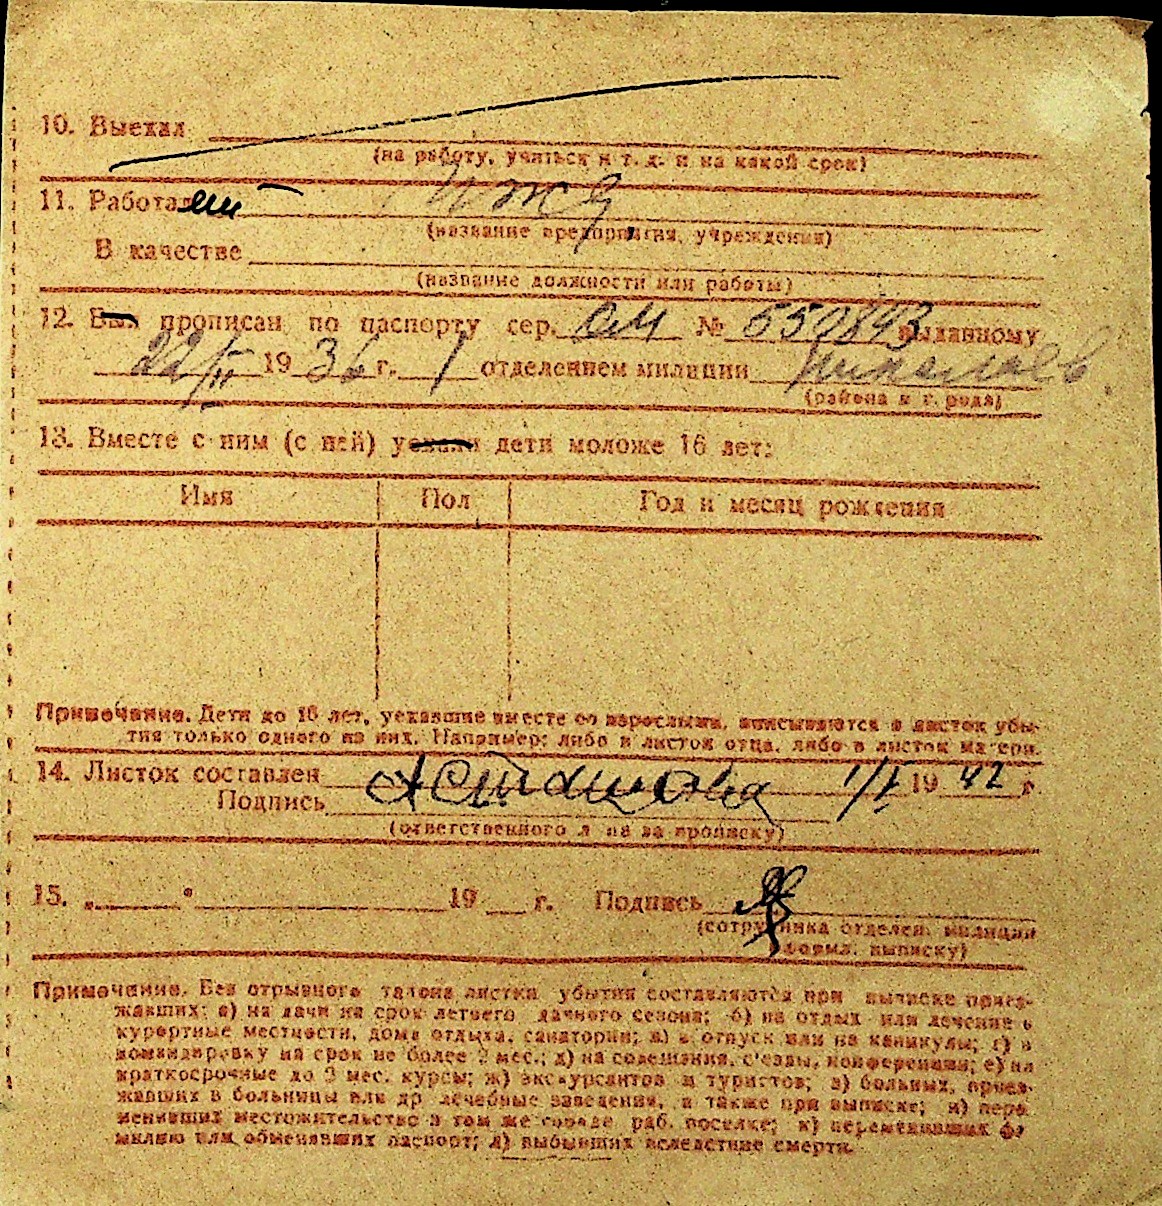 10. Выехал
(на работу, учиться и т. д. и на какой срок)
11. Работает иж
(название предприятия, учреждения)
В качестве
(название должности или работы)
12. Был прописан по паспорту сер. ОМ № 550893 выданному
22/II 1936 г. 1 отделением милиции Николаев
(района и города)
13. Вместе с ним (с ней) уехали дети моложе 16 лет:
Имя Пол Год и месяц рождения
Примечание. Дети до 16 лет, уехавшие вместе со взрослыми, вписываются в листок убы-
тия только одного из них. Например: либо в листок отца, либо в листок матери.
14. Листок составлен 1/I 1942 г
Подпись Асташова
(ответственного л на за прописку)
15. „ " 19 г. Подпись
(сотрудника отделен. милиции
оформл. выписку)
Примечание. Без отрывного талона листки убытия составляются при выписке приез-
жавших: а) на дачи на срок летнего дачного сезона; б) на отдых или лечение в
курортные местности, дома отдыха, санатории; в) в отпуск или на каникулы; г) в
командировку на срок не более 2 мес.; д) на совещания, с'езды, конференции; е) на
краткосрочные до 3 мес. курсы; ж) экскурсантов и туристов; з) больных, приез-
жавших в больницы или др лечебные заведения, а также при выписке; и) пере
менивших местожительство в том же городе раб. поселке; к) переменивших фа
милию или обменявших паспорт; л) выбывших вследствие смерти.